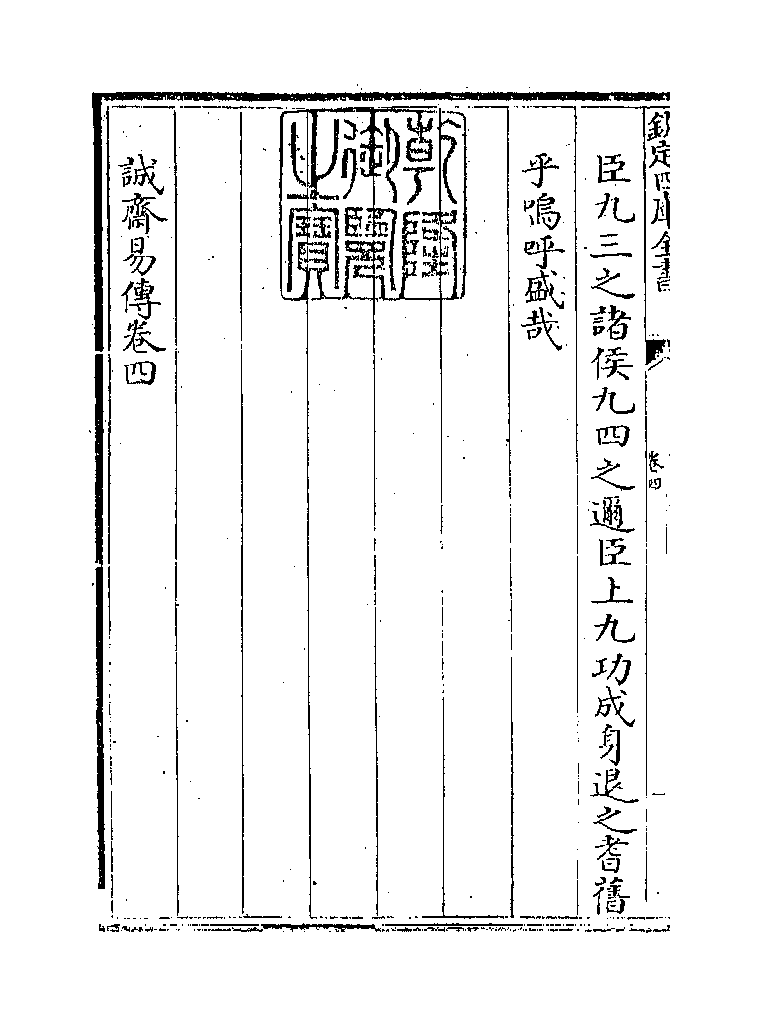 欽定四庫全書
卷四
臣九三之諸侯九四之邇臣上九功成身退之耆舊
乎嗚呼盛哉
乾隆
御覽
之寶
誠齋易傳卷四